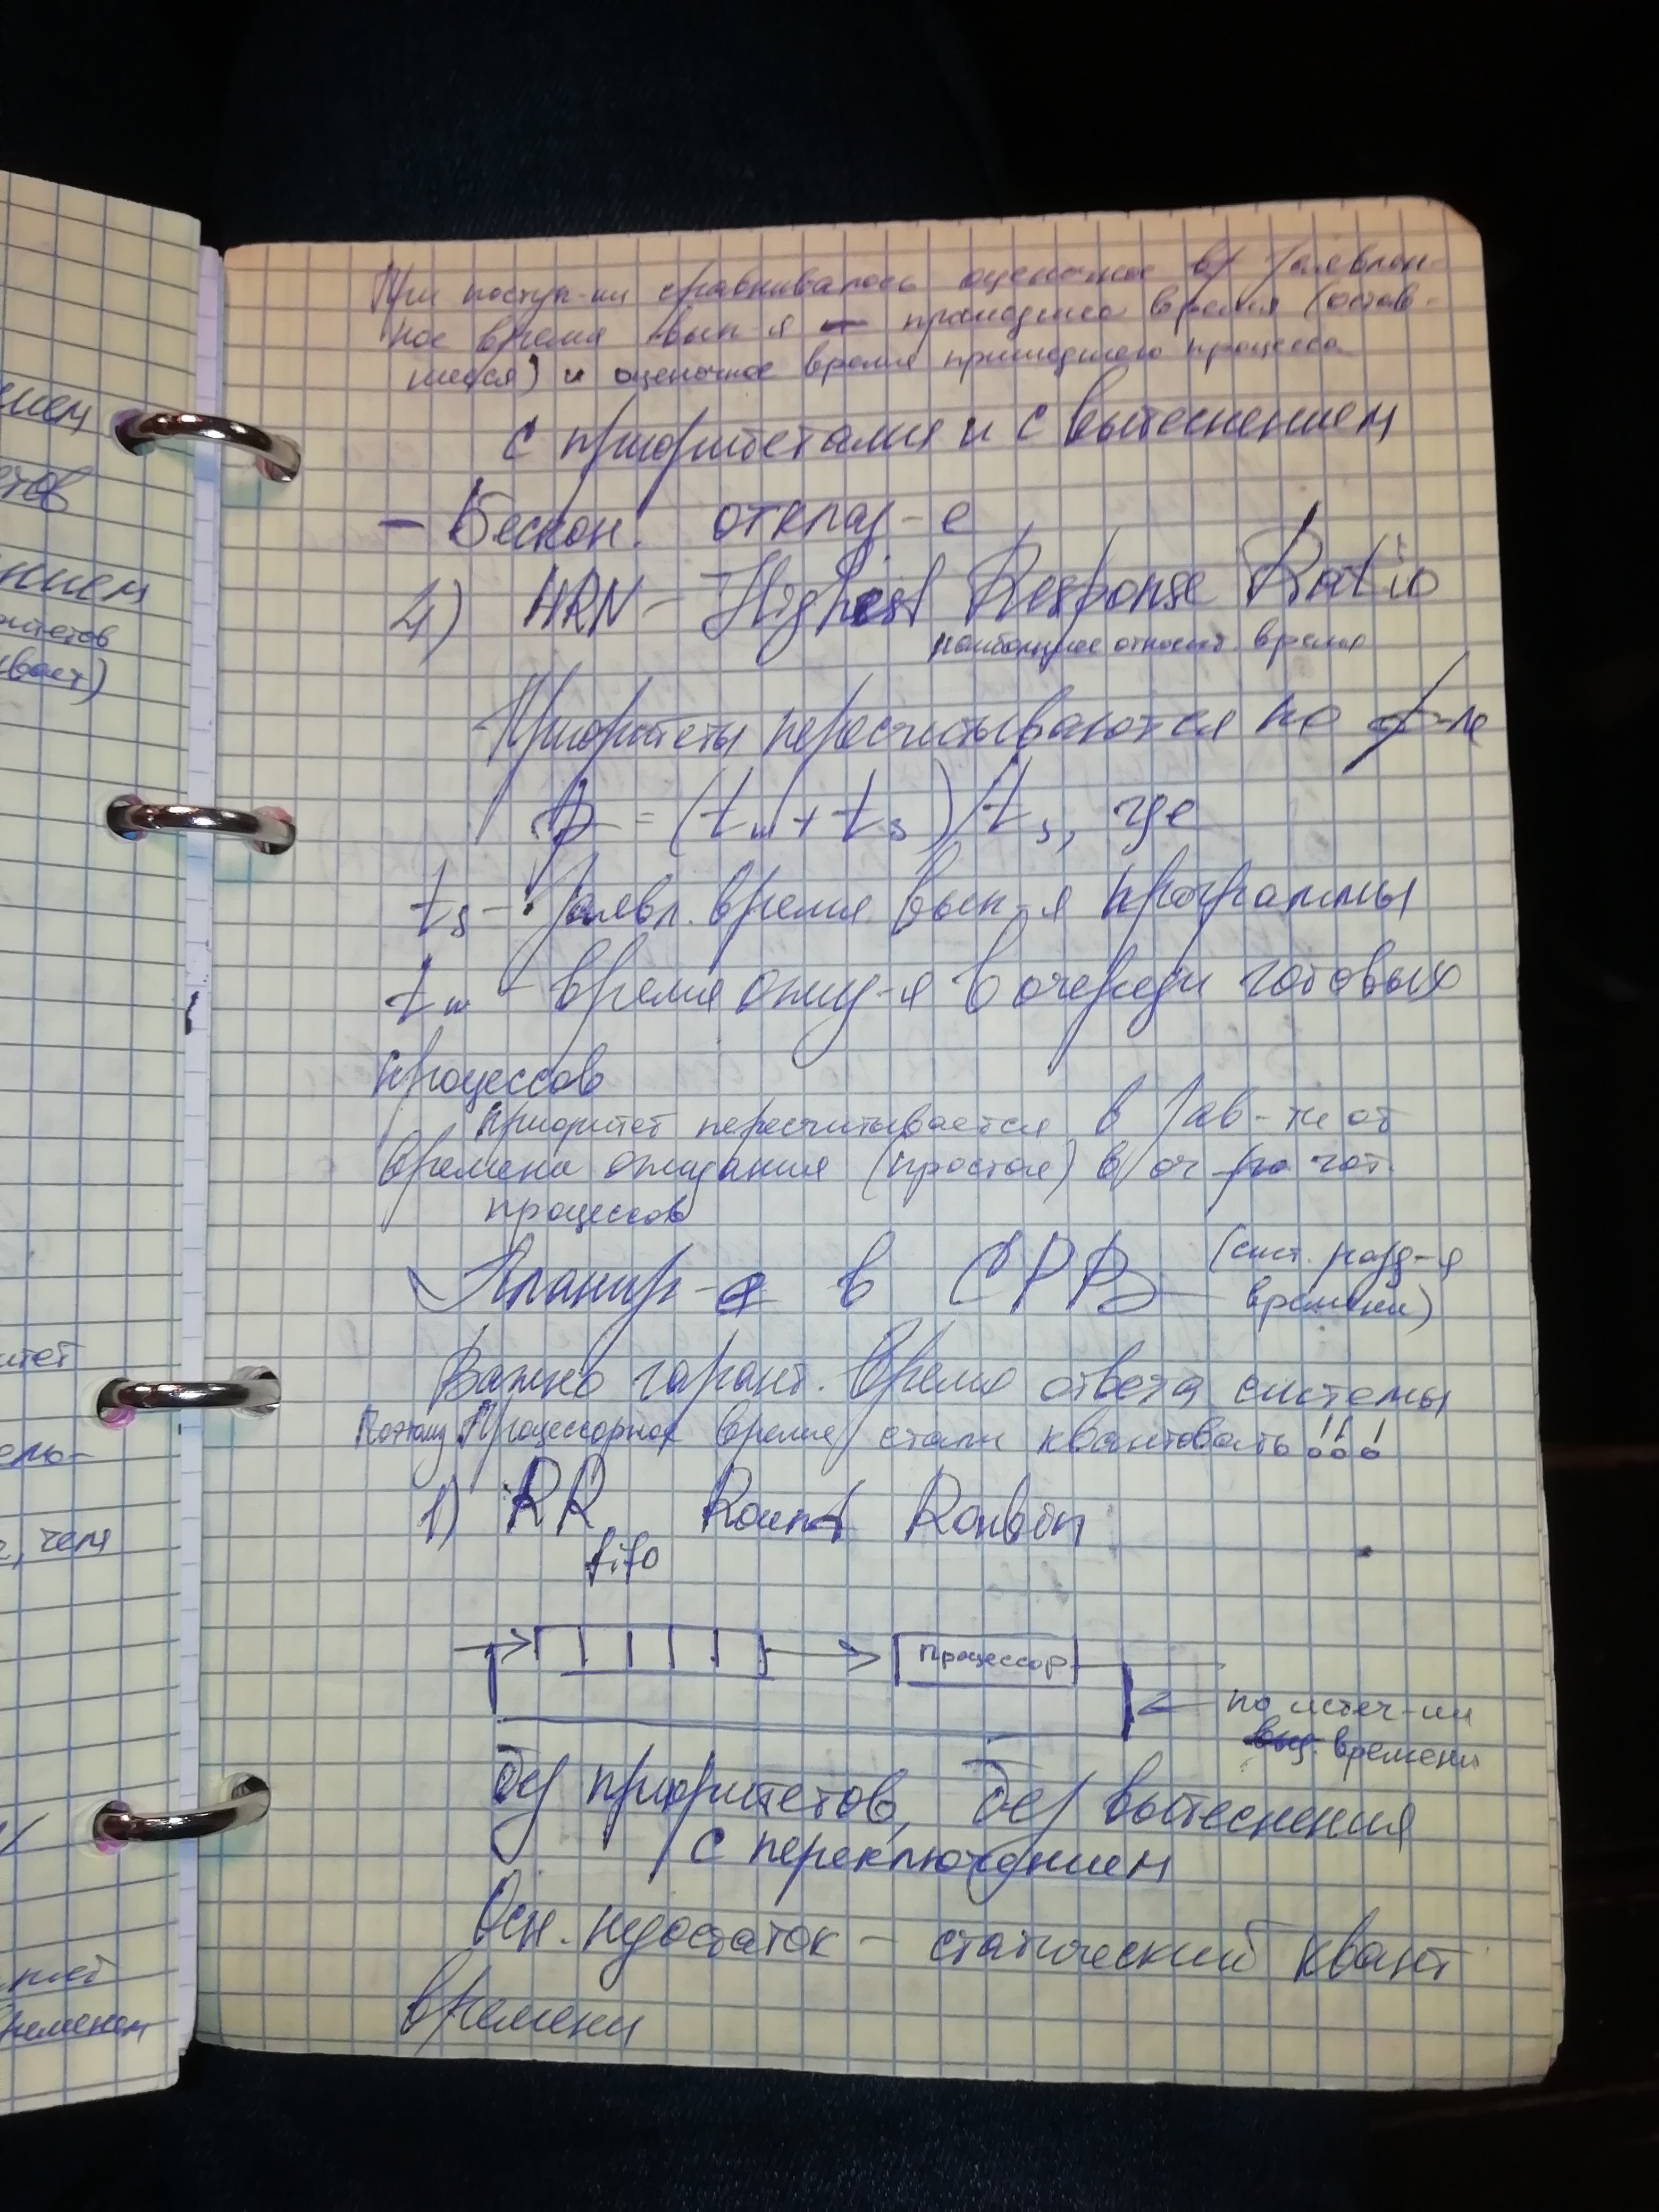 При поступ-ии сравнивалось оценочное в/ заявлен-
ное время вып-я прошедшее время (остав-
шееся) и оценочное время пришедшего процесса
с приоритетами и с вытеснением
- Бескон. отклад-е
4) HRN - Highest Response Ratio
наибольшее относит. время
Приоритеты пересчитываются по ф-ле
p = (tw + ts)/ts, где
ts - заявл. время вып-я программы
tw - время ожид-я в очереди готовых
процессов
Приоритет пересчитывается в зав-ти от
времени ожидания (простоя) в оч гот.
процессов
Планир-е в СРВ (сист. разд-я
времени)
Важно гарант. время ответа системы
Поэтому Процессорное время стали квантовать!!!
1) RR Round Roubin
fifo
процессор
по истеч-ии
времени
без приоритетов, без вытеснения
с переключением
Осн. недостаток - статический квант
времени
нием
етов
нием
ритетов
вает)
итет
ель-
, чем
ременем